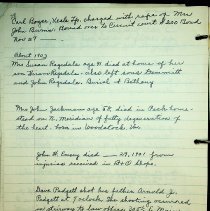 Carl Boger, Neale Tp. charged with rape of Mrs
John Burns. Bound over to Circuit court $200 Bond
Nov 29
About 1907
Mrs Susan Ragsdale age 91 died at home of her
son Hiram Ragsdale. also left sons Emmett
and John Ragsdale. Burial at Bethany
Mrs John Jackman age 58 died in Peck home-
stead on N. Meridian of fatty degeneration of
the heart. born in Woodstock, Vt.
John H. Emery died 29, 1901 from
injuries received in B+O Shops.
Dave Padgett shot his father Arnold J.
Padgett at 7 oclock. The shooting occurred